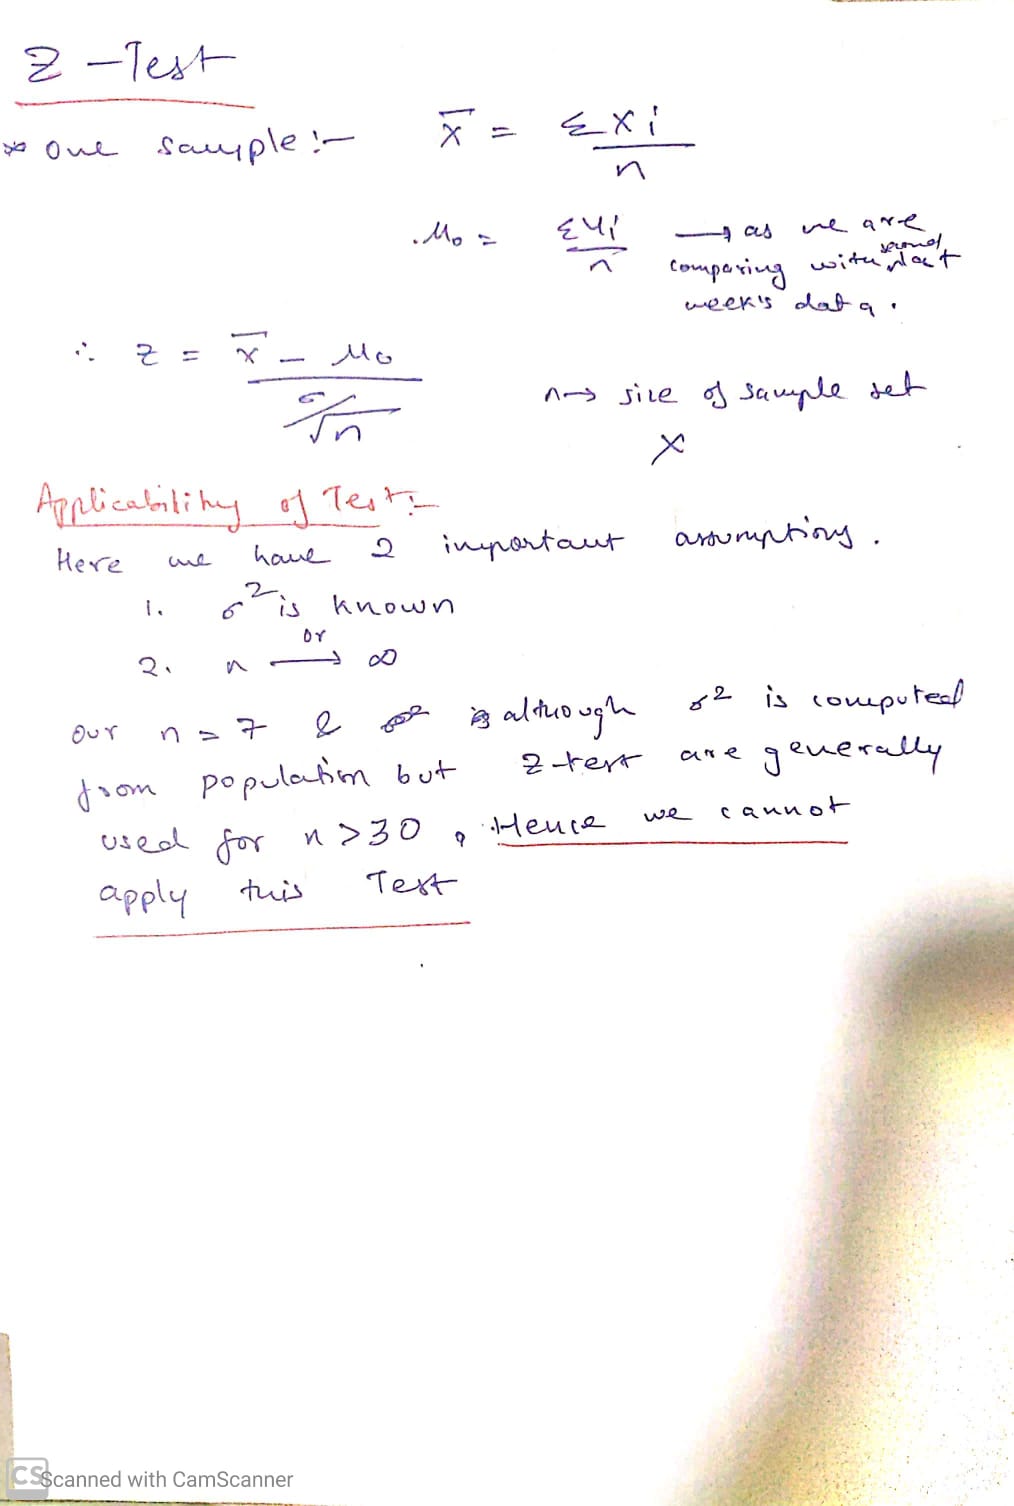 Z - Test
* one sample :- x̄ = Σxi / n
μ₀ = ΣYi / n → as we are
comparing with second last
week's data.
∴ z = x̄ - μ₀ / σ/√n
n → size of sample set
X
Applicability of Test:-
Here we have 2 important assumptions.
1. σ² is known
or
2. n → ∞
our n = 7 & although σ² is computed
from population but z-test are generally
used for n > 30, Hence we cannot
apply this Test
CS Scanned with CamScanner